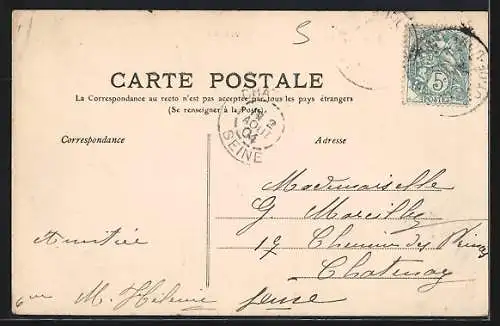 5
CARTE POSTALE
La Correspondance au recto n'est pas acceptée par tous les pays étrangers
(Se renseigner à la Poste)
CHA
2
AOUT
04
SEINE
5c
POSTES
Correspondance
Adresse
Mademoiselle
G. Marcilly
17 Chemin des
Amitié
Chatenay
M. Hélène
Seine